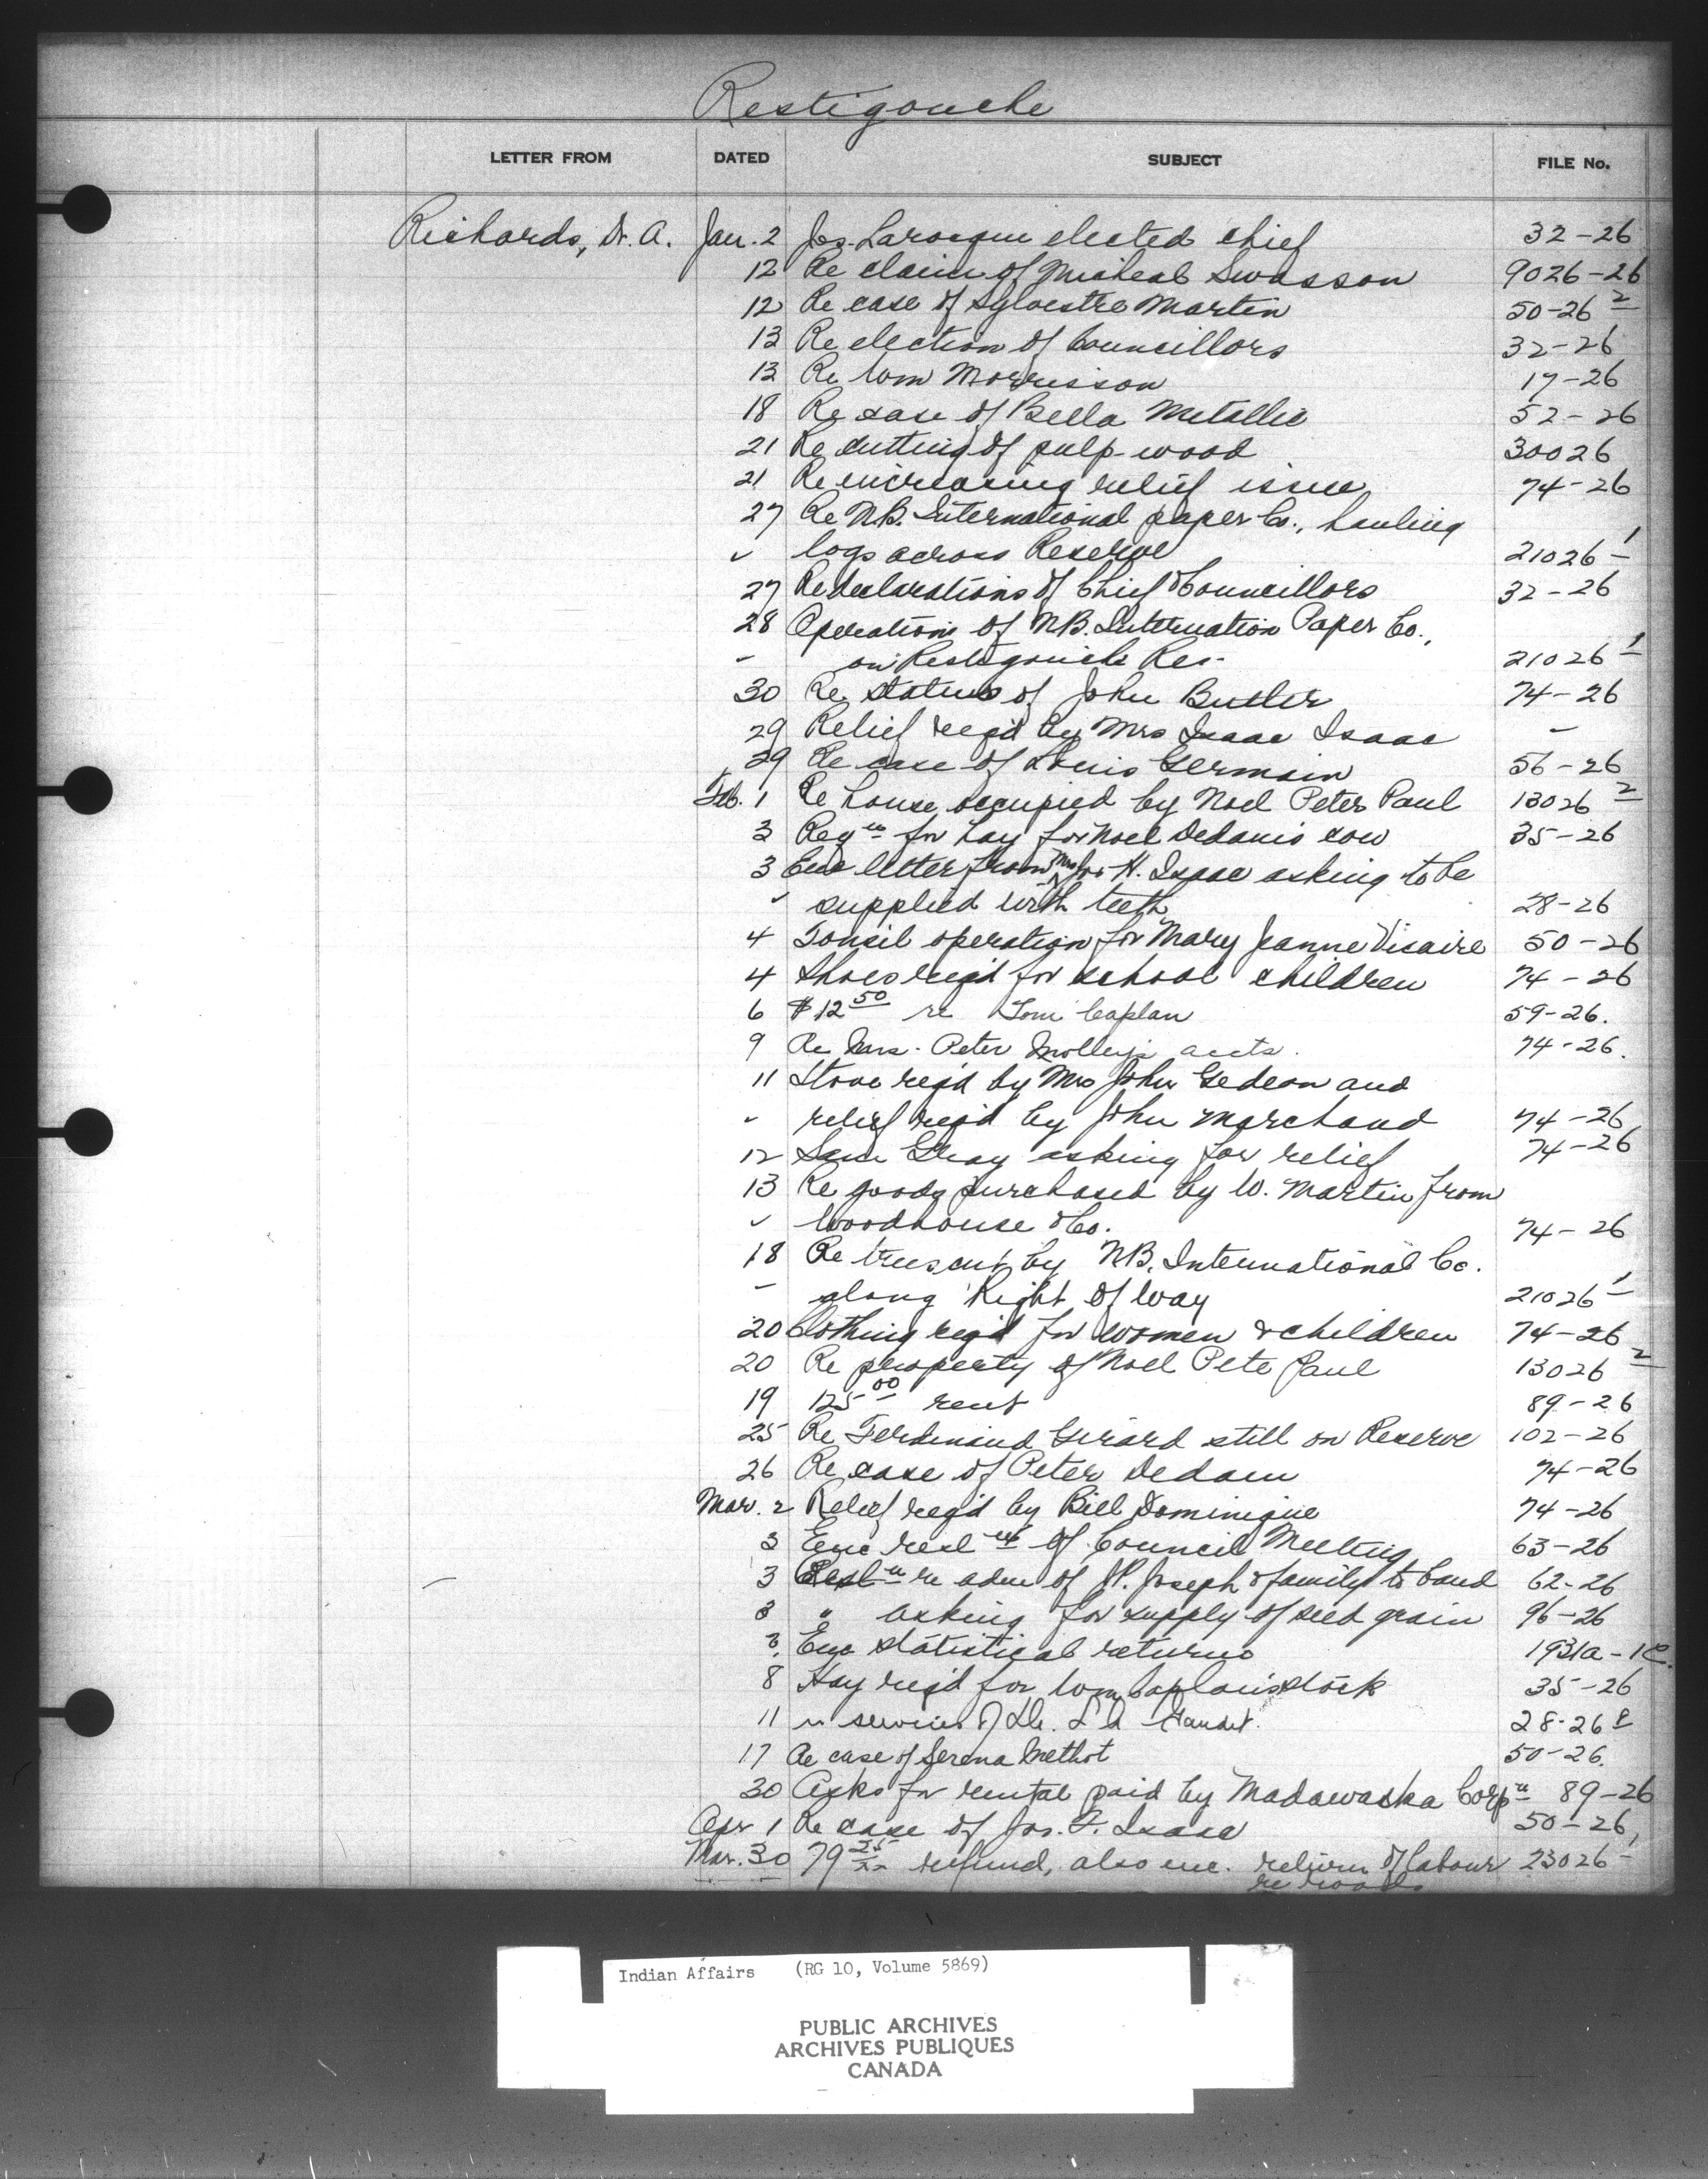 Restigouche
LETTER FROM DATED SUBJECT FILE No.
Richards, Dr. A. Jan. 2 Jos. Larocque elected chief 32-26
12 Re claim of Micheal Swasson 9026-26
12 Re case of Sylvestre Martin 50-26 2
13 Re election of Councillors 32-26
13 Re Wm Morrisson 17-26
18 Re case of Bella Metallic 52-26
21 Re cutting of pulp-wood 30026
21 Re increasing relief issue 74-26
27 Re N.B. International paper Co., hauling
" logs across Reserve 21026-1
27 Re declarations of Chief & Councillors 32-26
28 Operations of N.B. Internation Paper Co.,
" on Restigouche Res. 21026-1
30 Re status of John Butler 74-26
29 Relief req'd by Mrs Isaac Isaac "
29 Re case of Louis Germain 56-26
Feb. 1 Re house occupied by Noel Peter Paul 13026 2
3 Reqn for hay for Noel Dedam's cow 35-26
3 Enc letter from Mrs Jos H. Isaac asking to be
" supplied with teeth 28-26
4 Tonsil operation for Mary Jeanne Vicaire 50-26
4 Shoes req'd for school children 74-26
6 $12 50 re Tom Caplan 59-26.
9 Re Mrs. Peter Molley's accts. 74-26.
11 Stove req'd by Mrs John Gedeon and
" relief req'd by John Marchand 74-26
12 Sam Gray asking for relief 74-26
13 Re goods purchased by W. Martin from
" Woodhouse & Co. 74-26
18 Re trees cut by N.B. International Co.
" along Right of Way 21026-1
20 Clothing req'd for women & children 74-26
20 Re property of Noel Pete Paul 13026 2
19 125 00 rent 89-26
25 Re Ferdinand Girard still on Reserve 102-26
26 Re case of Peter Dedam 74-26
Mar. 2 Relief req'd by Bill Dominique 74-26
3 Enc of Council Meeting 63-26
3 re adm of J.P. Joseph & family to band 62-26
3 " asking for supply of seed grain 96-26
3 Enc statistical returns 1931a-1C.
8 Hay req'd for Wm Caplan's stock 35-26
11 re services of Dr. L A Gaudet. 28-26
17 Re case of Serena Methot 50-26.
30 Asks for rental paid by Madawaska Corpn 89-26
Apr 1 Re case of Jos. F. Isaac 50-26,
Mar. 30 79 25 refund, also enc. return of labour 23026-
re roads
Indian Affairs (RG 10, Volume 5869)
PUBLIC ARCHIVES
ARCHIVES PUBLIQUES
CANADA